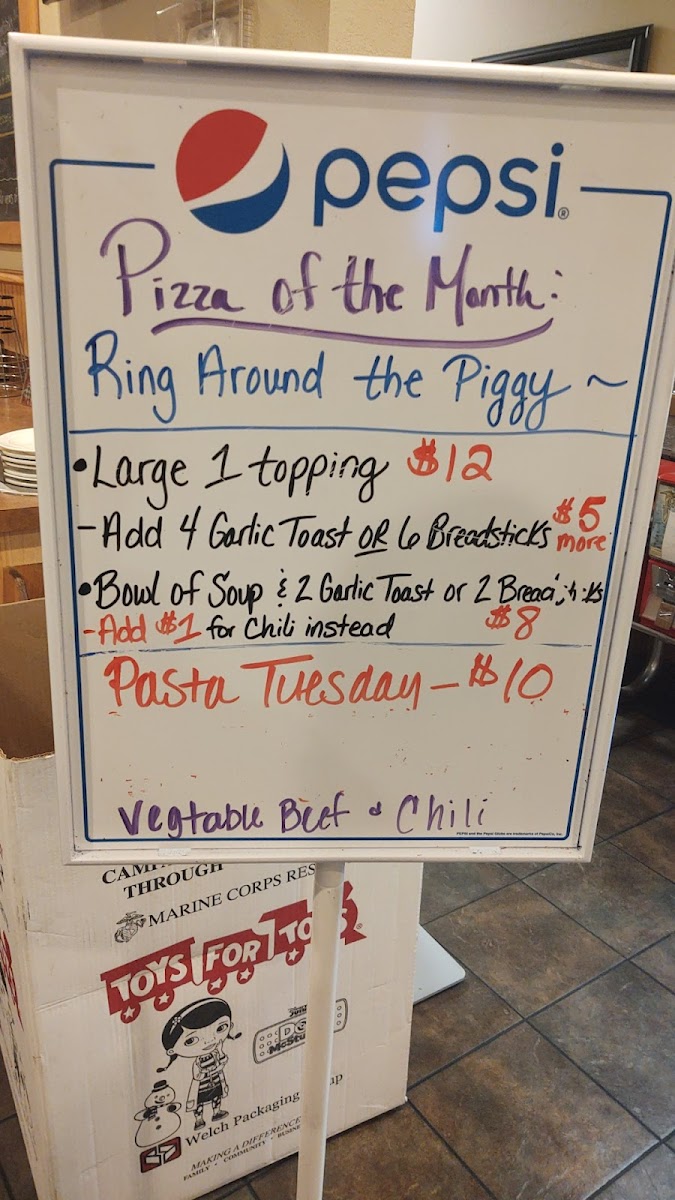 pepsi®
Pizza of the Month:
Ring Around the Piggy ~
•Large 1 topping $12
-Add 4 Garlic Toast OR 6 Breadsticks $5 more
•Bowl of Soup & 2 Garlic Toast or 2 Breadsticks
-Add $1 for Chili instead $8
Pasta Tuesday - $10
Vegtable Beef & Chili
PEPSI and the Pepsi Globe are trademarks of PepsiCo, Inc.
THROUGH
MARINE CORPS RES
TOYS FOR TO
Welch Packaging
MAKING A DIFFERENCE
FAMILY • COMMUNITY • BUSIN